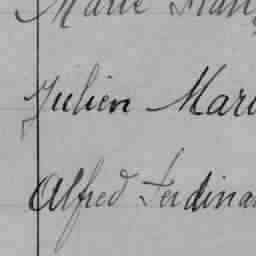 Marie
Julien Mari
Alfred Ferdinan